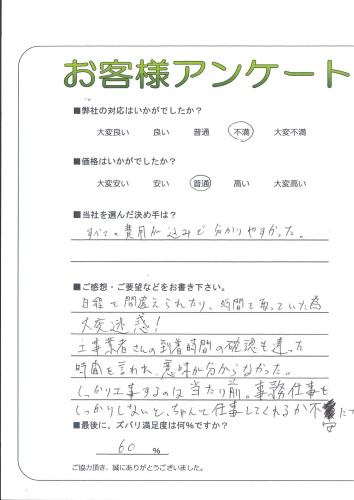 お客様アンケート
■弊社の対応はいかがでしたか?
大変良い 良い 普通 不満 大変不満
■価格はいかがでしたか?
大変安い 安い 普通 高い 大変高い
■当社を選んだ決め手は?
すべての費用が込みで分かりやすかった。
■ご感想・ご要望などをお書き下さい。
日程を間違えられたり、時間を取っていた為
大変迷惑!
工事業者さんの到着時間の確認も違った
時間を言われ、意味が分からなかった。
しっかり工事するのは当たり前。事務仕事も
しっかりしないと、ちゃんと仕事してくれるか不
■最後に、ズバリ満足度は何%ですか?
60 %
ご協力頂き、誠にありがとうございました。